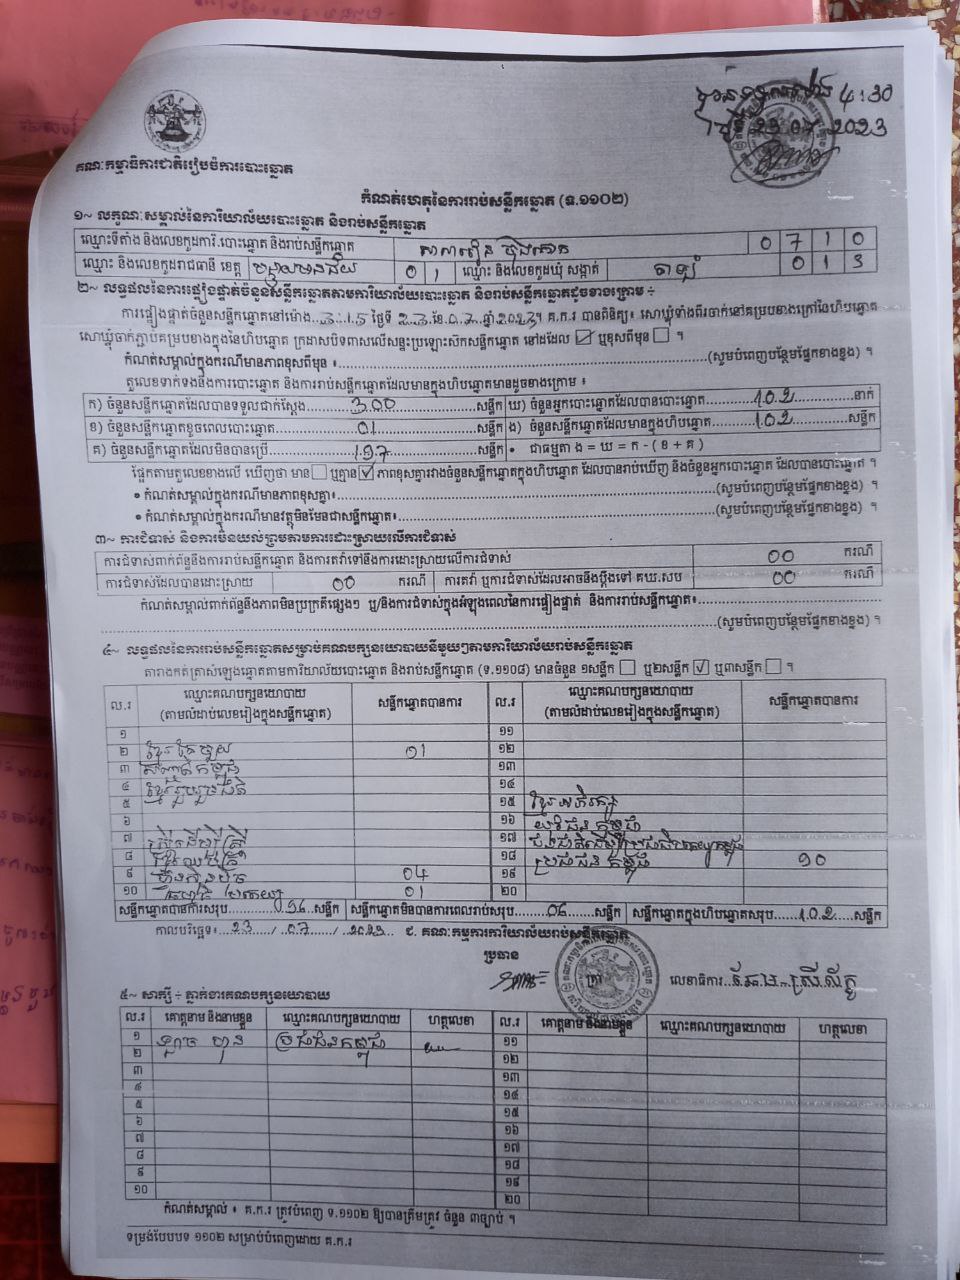 4:30
23 07 2023
គណៈកម្មាធិការជាតិរៀបចំការបោះឆ្នោត
កំណត់ហេតុនៃការរាប់សន្លឹកឆ្នោត (ទ.១១០២)
១~ លក្ខណៈសម្គាល់នៃការិយាល័យបោះឆ្នោត និងរាប់សន្លឹកឆ្នោត
ឈ្មោះទីតាំង និងលេខកូដការិ.បោះឆ្នោត និងរាប់សន្លឹកឆ្នោត 0 7 1 0
ឈ្មោះ និងលេខកូដរាជធានី ខេត្ត បន្ទាយមានជ័យ 0 1 ឈ្មោះ និងលេខកូដឃុំ សង្កាត់ 0 1 3
២~ លទ្ធផលនៃការផ្ទៀងផ្ទាត់ចំនួនសន្លឹកឆ្នោតតាមការិយាល័យបោះឆ្នោត និងរាប់សន្លឹកឆ្នោតដូចខាងក្រោម ÷
ការផ្ទៀងផ្ទាត់ចំនួនសន្លឹកឆ្នោតនៅម៉ោង..3:15 ថ្ងៃទី 23 ខែ 07 ឆ្នាំ 2023។ គ.ក.រ បានពិនិត្យ៖ សោឃ្លុំទាំងពីរចាក់នៅគម្របខាងក្រៅនៃហិបឆ្នោត
សោឃ្លុំចាក់ភ្ជាប់គម្របខាងក្នុងនៃហិបឆ្នោត ក្រដាសបិទពាសលើសន្ទះប្រឡោះស៊កសន្លឹកឆ្នោត នៅដដែល ☑ ឬខុសពីមុន ☐ ។
កំណត់សម្គាល់ក្នុងករណីមានភាពខុសពីមុន ៖ (សូមបំពេញបន្ថែមផ្នែកខាងខ្នង) ។
តួលេខទាក់ទងនឹងការបោះឆ្នោត និងការរាប់សន្លឹកឆ្នោតដែលមានក្នុងហិបឆ្នោតមានដូចខាងក្រោម ៖
ក) ចំនួនសន្លឹកឆ្នោតដែលបានទទួលជាក់ស្តែង 300 សន្លឹក ឃ) ចំនួនអ្នកបោះឆ្នោតដែលបានបោះឆ្នោត 102 នាក់
ខ) ចំនួនសន្លឹកឆ្នោតខូចពេលបោះឆ្នោត 01 សន្លឹក ង) ចំនួនសន្លឹកឆ្នោតដែលមានក្នុងហិបឆ្នោត 102 សន្លឹក
គ) ចំនួនសន្លឹកឆ្នោតដែលមិនបានប្រើ 197 សន្លឹក • ជាធម្មតា ង = ឃ = ក - ( ខ + គ )
ផ្អែកតាមតួលេខខាងលើ ឃើញថា មាន ☐ ឬគ្មាន ☑ ភាពខុសគ្នារវាងចំនួនសន្លឹកឆ្នោតក្នុងហិបឆ្នោត ដែលបានរាប់ឃើញ និងចំនួនអ្នកបោះឆ្នោត ដែលបានបោះឆ្នោត ។
• កំណត់សម្គាល់ក្នុងករណីមានភាពខុសគ្នា៖ (សូមបំពេញបន្ថែមផ្នែកខាងខ្នង) ។
• កំណត់សម្គាល់ក្នុងករណីមានវត្ថុមិនមែនជាសន្លឹកឆ្នោត៖ (សូមបំពេញបន្ថែមផ្នែកខាងខ្នង) ។
៣~ ការជំទាស់ និងការមិនយល់ព្រមតាមការដោះស្រាយលើការជំទាស់
ការជំទាស់ពាក់ព័ន្ធនឹងការរាប់សន្លឹកឆ្នោត និងការតវ៉ាទៅនឹងការដោះស្រាយលើការជំទាស់ 00 ករណី
ការជំទាស់ដែលបានដោះស្រាយ 00 ករណី ការតវ៉ា ឬការជំទាស់ដែលអាចនឹងប្តឹងទៅ គឃ.សប 00 ករណី
កំណត់សម្គាល់ពាក់ព័ន្ធនឹងភាពមិនប្រក្រតីផ្សេងៗ ឬ/និងការជំទាស់ក្នុងអំឡុងពេលនៃការផ្ទៀងផ្ទាត់ និងការរាប់សន្លឹកឆ្នោត៖
(សូមបំពេញបន្ថែមផ្នែកខាងខ្នង) ។
៤~ លទ្ធផលនៃការរាប់សន្លឹកឆ្នោតសម្រាប់គណបក្សនយោបាយនីមួយៗតាមការិយាល័យរាប់សន្លឹកឆ្នោត
តារាងកត់ត្រាសំឡេងឆ្នោតតាមការិយាល័យបោះឆ្នោត និងរាប់សន្លឹកឆ្នោត (ទ.១១០៨) មានចំនួន ១សន្លឹក ☐ ឬ២សន្លឹក ☑ ឬ៣សន្លឹក ☐ ។
ល.រ ឈ្មោះគណបក្សនយោបាយ (តាមលំដាប់លេខរៀងក្នុងសន្លឹកឆ្នោត) សន្លឹកឆ្នោតបានការ ល.រ ឈ្មោះគណបក្សនយោបាយ (តាមលំដាប់លេខរៀងក្នុងសន្លឹកឆ្នោត) សន្លឹកឆ្នោតបានការ
១ ១១
២ ០១ ១២
៣ ១៣
៤ ខ្មែររួបរួមជាតិ ១៤
៥ ១៥ ខ្មែរអភិរក្ស
៦ ១៦
៧ ១៧
៨ ១៨ ប្រជាជនកម្ពុជា ៦០
៩ 04 ១៩
១០ 01 ២០
សន្លឹកឆ្នោតបានការសរុប ០៩៦ សន្លឹក សន្លឹកឆ្នោតមិនបានការពេលរាប់សរុប 06 សន្លឹក សន្លឹកឆ្នោតក្នុងហិបឆ្នោតសរុប 102 សន្លឹក
កាលបរិច្ឆេទ៖ 23 / 07 / 2023 ជ. គណៈកម្មការការិយាល័យរាប់សន្លឹកឆ្នោត
ប្រធាន
លេខាធិការ
៥~ សាក្សី ÷ ភ្នាក់ងារគណបក្សនយោបាយ
ល.រ គោត្តនាម និងនាមខ្លួន ឈ្មោះគណបក្សនយោបាយ ហត្ថលេខា ល.រ គោត្តនាម និងនាមខ្លួន ឈ្មោះគណបក្សនយោបាយ ហត្ថលេខា
១ ប្រជាជនកម្ពុជា ១១
២ ១២
៣ ១៣
៤ ១៤
៥ ១៥
៦ ១៦
៧ ១៧
៨ ១៨
៩ ១៩
១០ ២០
កំណត់សម្គាល់ ៖ គ.ក.រ ត្រូវបំពេញ ទ.១១០២ ឱ្យបានត្រឹមត្រូវ ចំនួន ៣ច្បាប់ ។
ទម្រង់បែបបទ ១១០២ សម្រាប់បំពេញដោយ គ.ក.រ